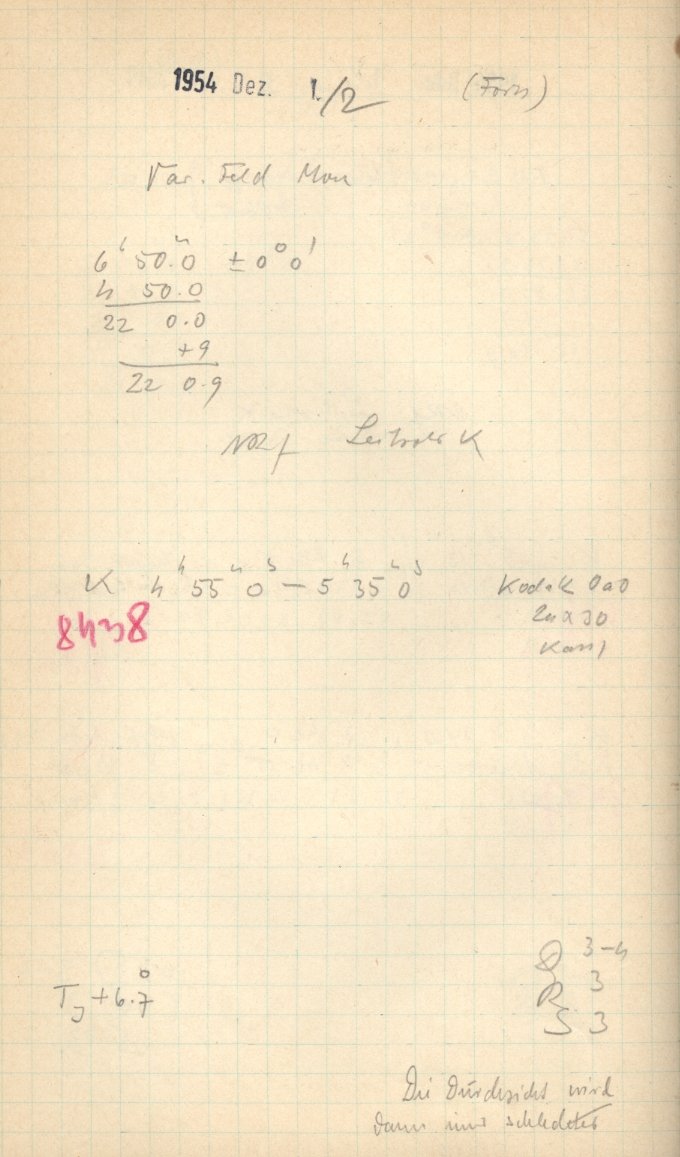 1954 Dez. 1./2 (Forts)
Var. Feld Mon
6ʰ 50.ᵐ0 ±0°0'
4 50.0
22 0.0
+9
22 0.9
K 4ʰ55ᵐ0ˢ – 5ʰ35ᵐ0ˢ Kodak 0a0
8438
Tj +6.7°
Q 3-4
R 3
S 3
Die Durchsicht wird
dann immer schlechter